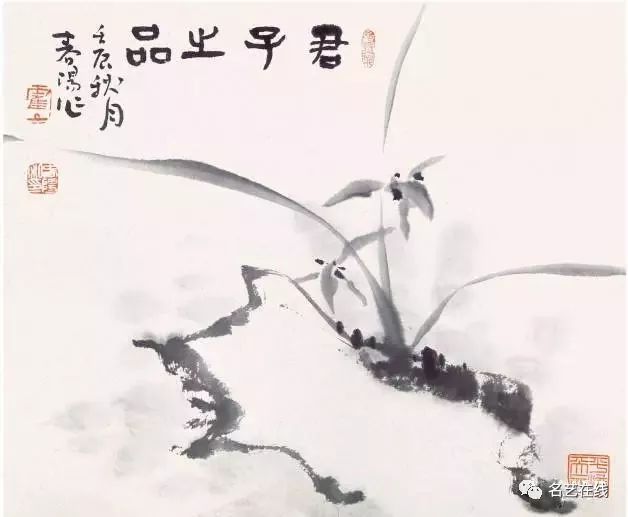 君子之品
壬辰秋月
春阳作
名艺在线